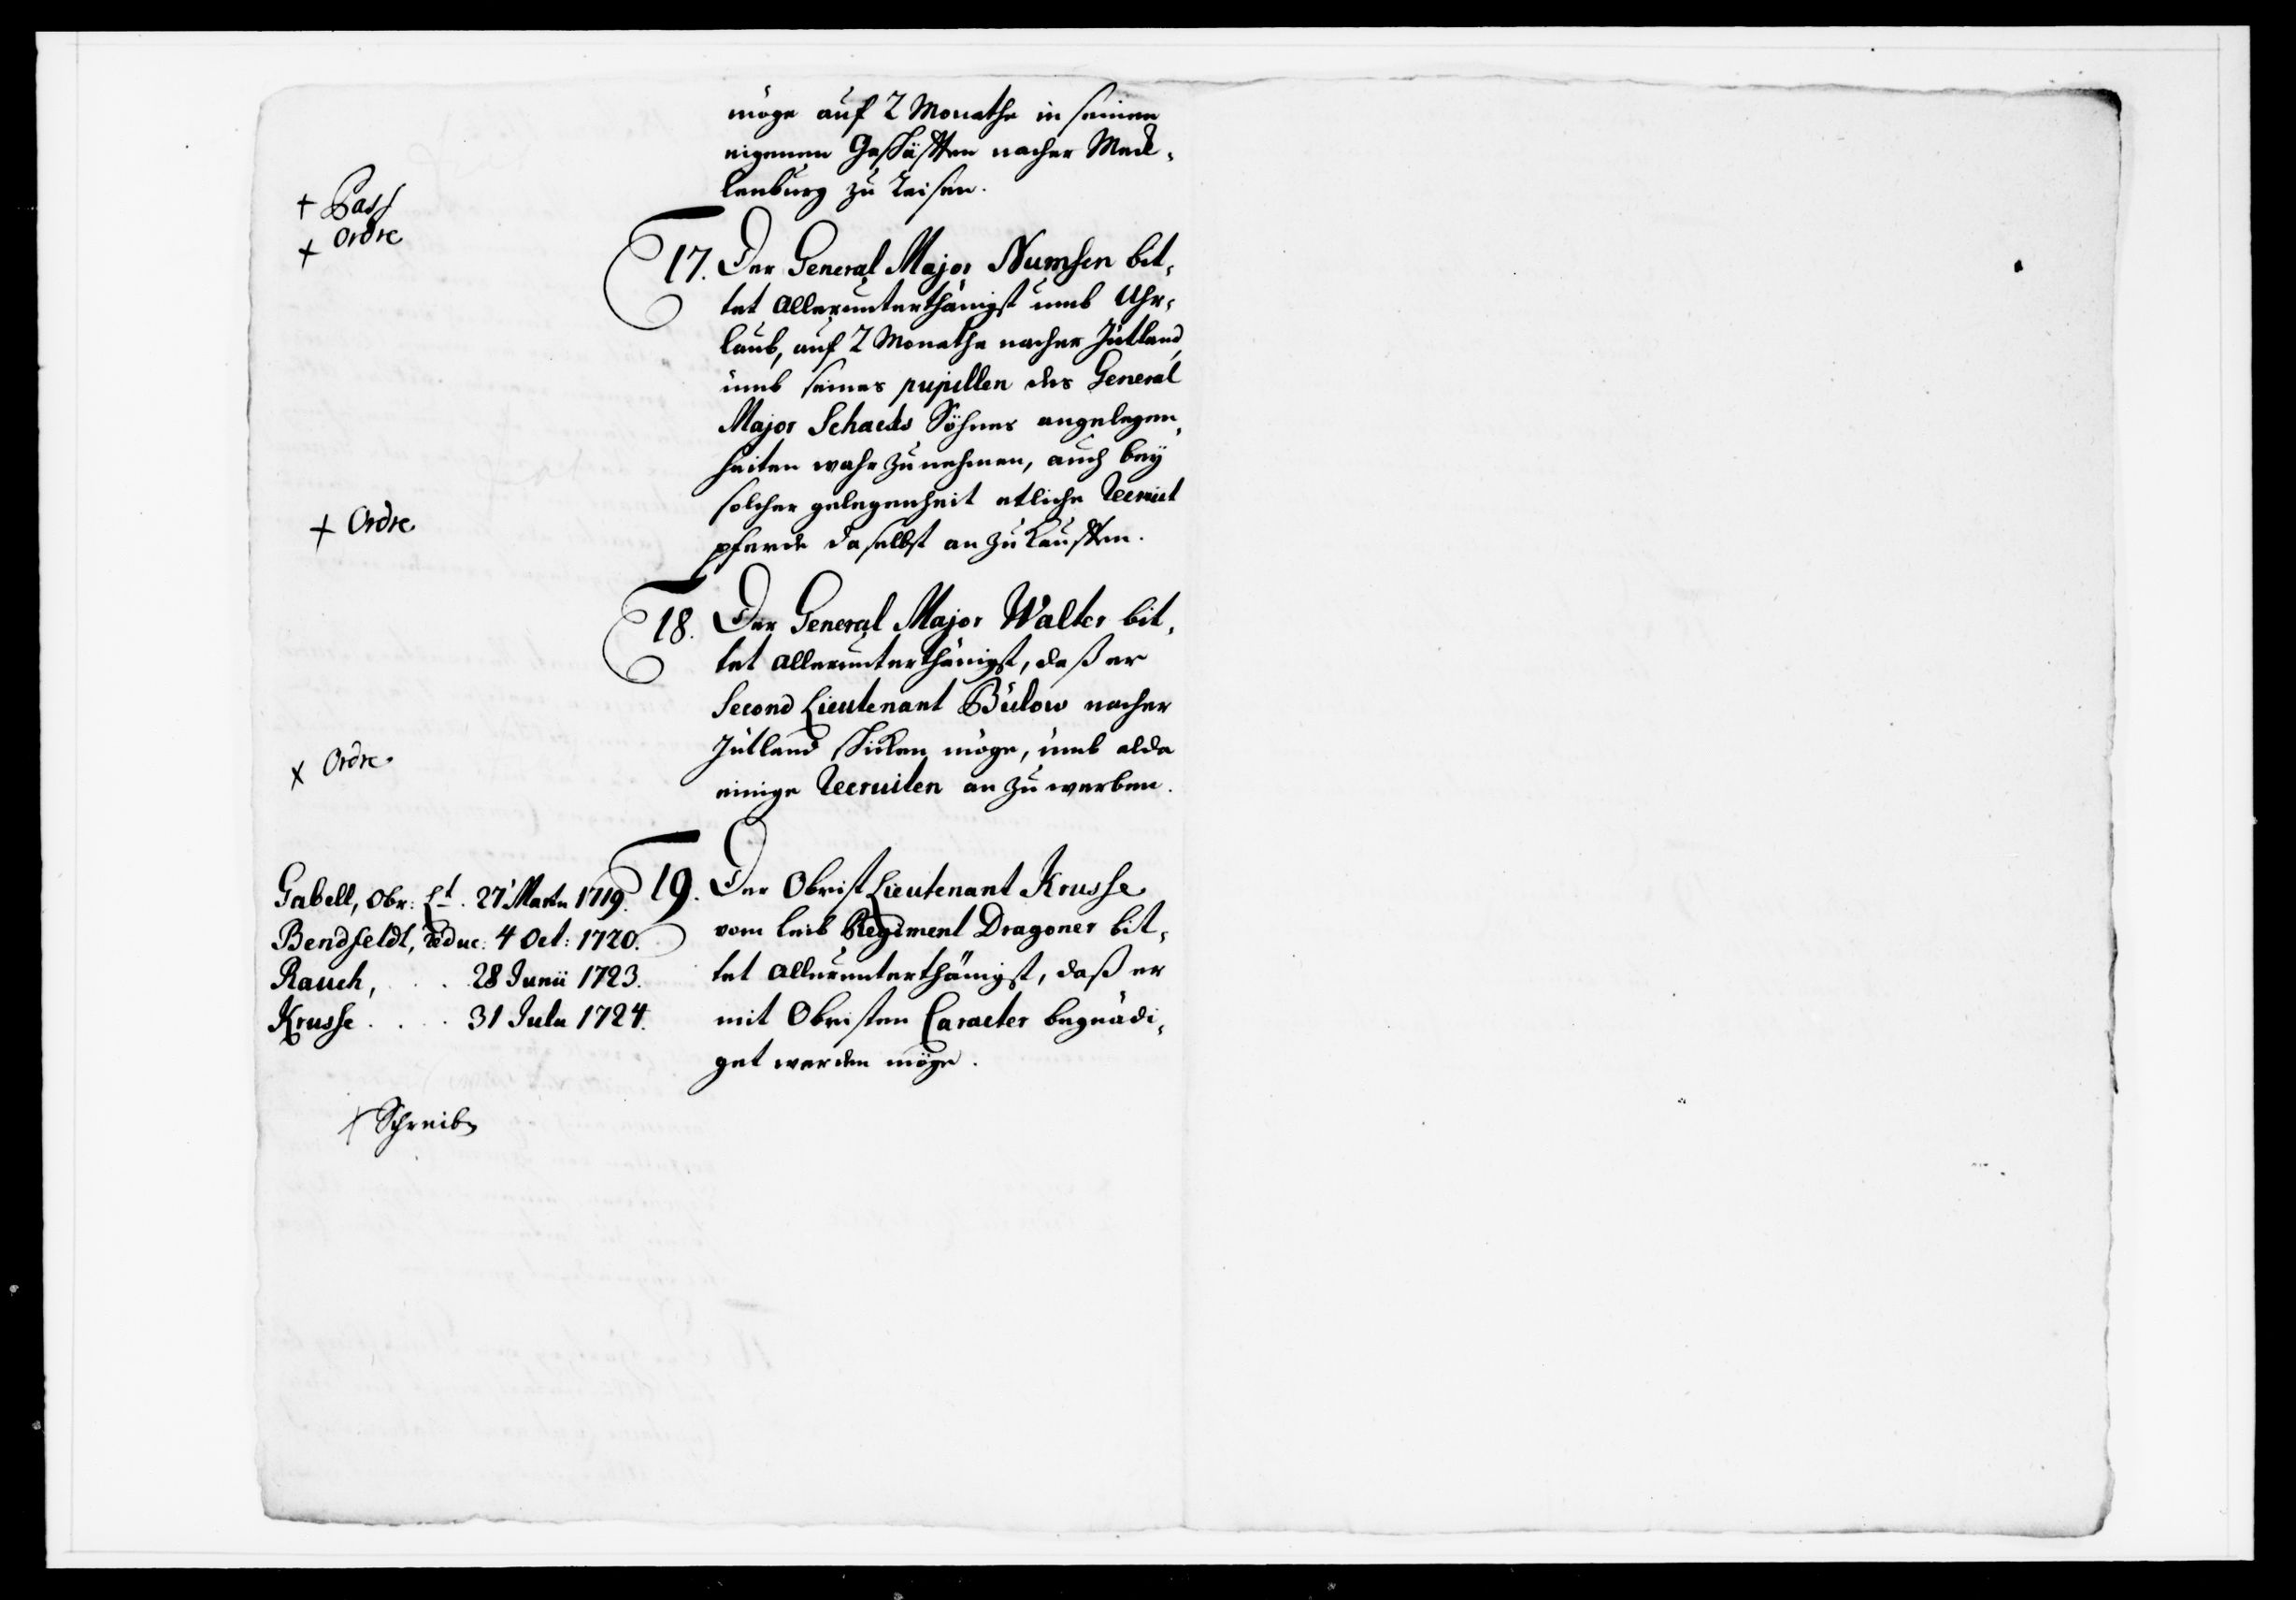 möge auf 2 Monathe in seinen
eigenen Geschäfften nacher Meck-
lenburg zu reisen.
+ Pass
+ Ordre
17. Der General Major Numsen bit-
tet allerunterthänigst umb Uhr-
laub, auf 2 Monathe nacher Jütland,
umb seines pupillen des General
Major Schacks Söhnes angelegen-
heiten wahr zu nehmen, auch bey
solcher gelegenheit etliche Recruit
pferde daselbst an zu kauffen.
+ Ordre
18. Der General Major Walter bit-
tet allerunterthänigst, daß er
Second Lieutenant Bülow nacher
Jütland schicken möge, umb alda
einige Recruiten an zu werben.
x Ordre
19. Der Obrist Lieutenant Krusse
vom leib Regiment Dragoner bit-
tet allerunterthänigst, daß er
mit Obristen Caracter begnädi-
get werden möge.
Gabell, Obr: Lt. 27 Martii 1719.
Bendfeldt, reduc: 4 Oct: 1720.
Rauch, . . 28 Junii 1723.
Krusse . . . . 31 Julii 1724.
+ Schreiben